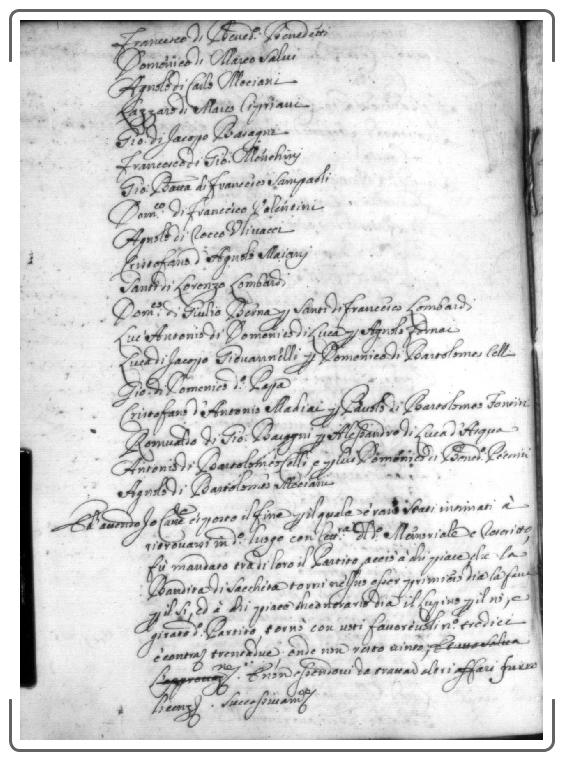 Francesco di Bened.º Benedetti
Domenico di Marco Salvi
Agnolo di Carlo Mociani
Lazzaro di Marco Cipriani
Gio: di Jacopo Baragni
Francesco di Gio: Menchinj
Gio: Batta di Francesco Sampaoli
Dom.co di Francesco Valentini
Agnolo di Rocco Ulivacci
Cristofano d'Agnolo Maianj
Santi di Lorenzo Lombardi
Dom.co di Giulio Berna p Santi di Francesco Lombardi
Luc'Antonio di Domenico di Luca p Agnolo
Luca di Jacopo Giovannelli p Domenico di Bartolomeo Celli
Gio: di Domenico d.º Papa
Cristofano d'Antonio Madiai p Pavolo di Bartolomeo
Romualdo di Gio: Baragni p Alessandro di Luca d'Acqua
Antonio di Bartolomeo Celli e p lui Domenico di Bened.º
Agnolo di Bartolomeo Mociani
Et avendo Jo Canc.e esposto il fine p il quale erano stati intimati à
ritrovarsi in d.º luogo con lett.ra del d.º Memoriale e Rescritto
fù mandato tra di loro il Partito, acciò à chi piace che la
Bandita di Saccheta torni nel suo esser primiero dia la fava
p il sì, ed à chi piace in contrario dia il lupino p il nò, e
girato d.º Partito, tornò con voti favorevoli n.º tredici
e contrarj trentadue, onde non restò vinto,
E non essendovi da trattar altri affari furno
licenz.ti Successivam.te